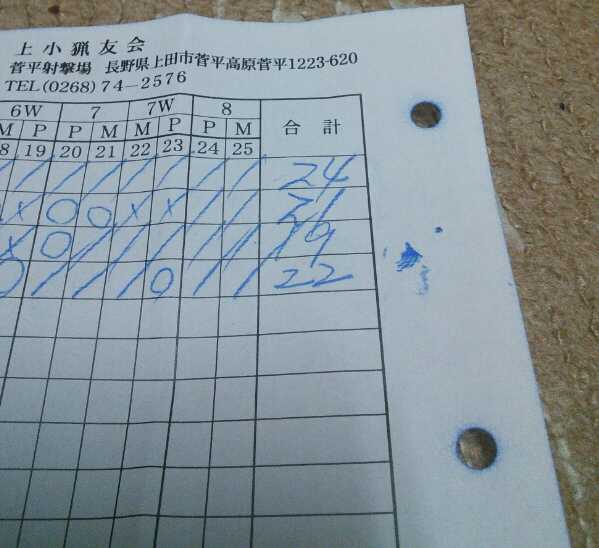 上小猟友会
菅平射撃場 長野県上田市菅平高原菅平1223-620
TEL(0268)74-2576
6W 7 7W 8 合計
M P P M M P P M
8 19 20 21 22 23 24 25
/ / / / / / / / 24
x O O x x / / 21
x O / / / / / / 19
O / / / / O / / 22